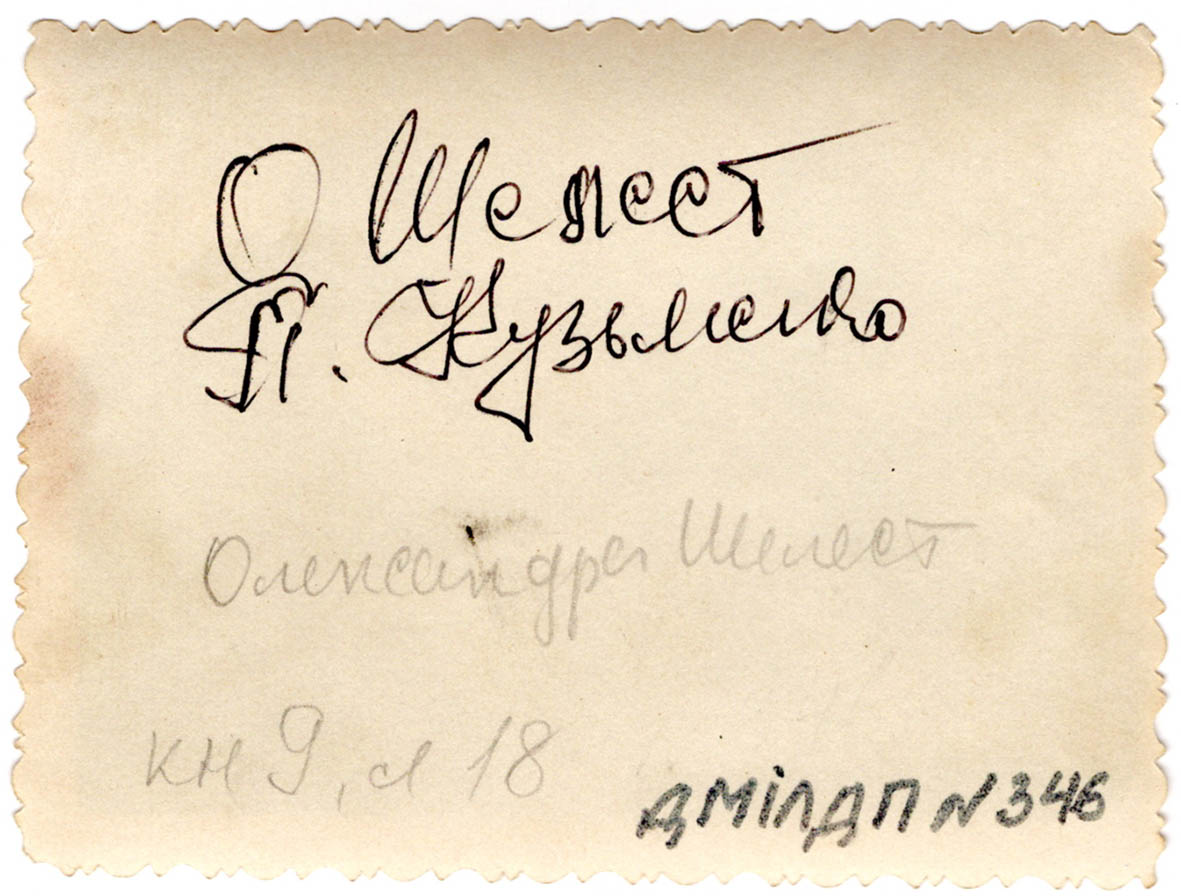 О Шелест
П. Кузьменко
Олександра Шелест
кн 9, л 18
ДМІЛДП N 346